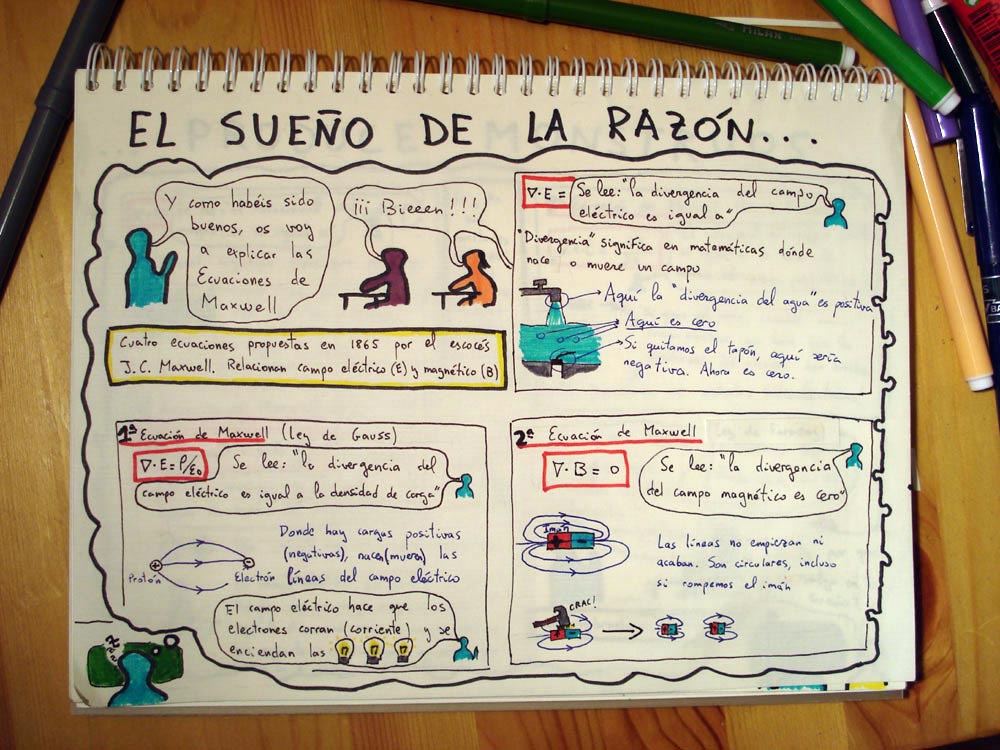 EL SUEÑO DE LA RAZÓN...
Y como habéis sido
buenos, os voy
a explicar las
Ecuaciones de
Maxwell
¡¡¡ Bieeen!!!
Cuatro ecuaciones propuestas en 1865 por el escocés
J.C. Maxwell. Relacionan campo eléctrico (E) y magnético (B)
∇·E =
Se lee: "la divergencia del campo
eléctrico es igual a"
"Divergencia" significa en matemáticas dónde
nace o muere un campo
Aquí la "divergencia del agua" es positiva
Aquí es cero
Si quitamos el tapón, aquí sería
negativa. Ahora es cero.
1ª Ecuación de Maxwell (Ley de Gauss)
∇·E=ρ/ε0
Se lee: "la divergencia del
campo eléctrico es igual a la densidad de carga"
Donde hay cargas positivas
(negativas), nacen (mueren) las
líneas del campo eléctrico
+
-
Protón
Electrón
El campo eléctrico hace que los
electrones corran (corriente) y se
enciendan las
2ª Ecuación de Maxwell
∇·B = 0
Se lee: "la divergencia
del campo magnético es cero"
Imán
+ -
Las líneas no empiezan ni
acaban. Son circulares, incluso
si rompemos el imán
CRAC!
+ -
+ -
+ -
MILAN